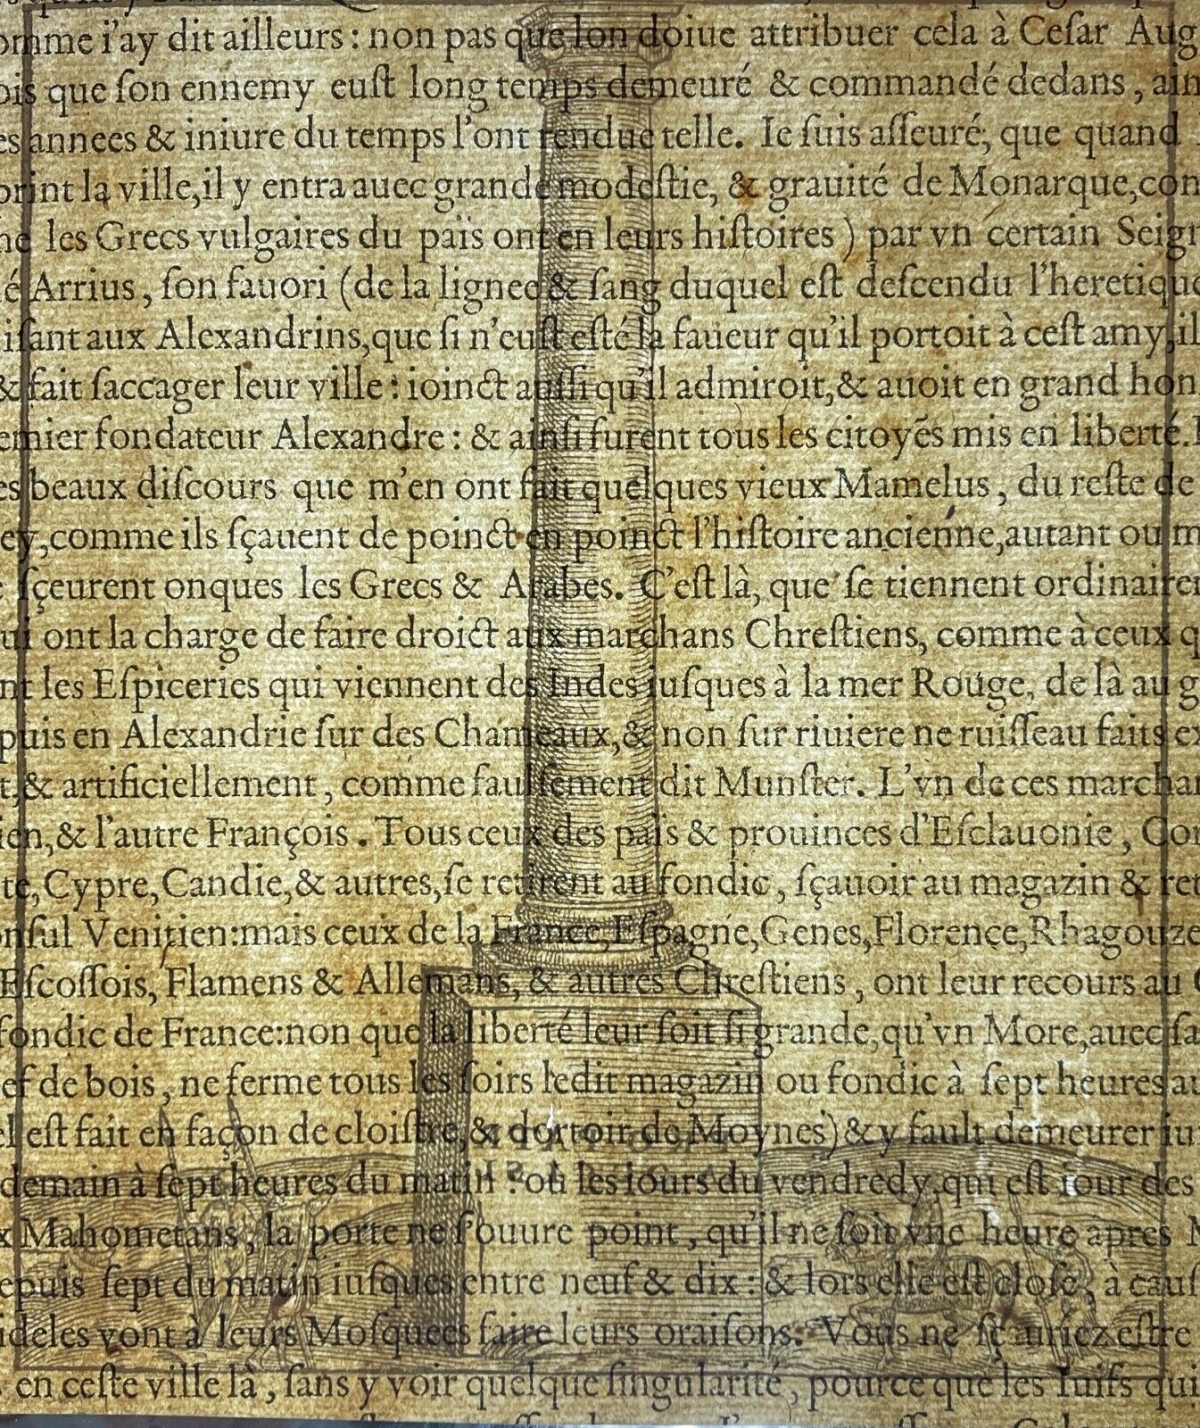 omme i'ay dit ailleurs : non pas que lon doiue attribuer cela à Ceſar Aug
ois que ſon ennemy euſt long temps demeuré & commandé dedans, ain
es annees & iniure du temps l'ont rendue telle. Ie ſuis aſſeuré, que quand
print la ville, il y entra auec grande modeſtie, & grauité de Monarque, con
les Grecs vulgaires du païs ont en leurs hiſtoires ) par vn certain Seign
é Arrius, ſon fauori (de la lignee & ſang duquel eſt deſcendu l'heretique
iſant aux Alexandrins, que ſi n'euſt eſté la faueur qu'il portoit à ceſt amy, il
& fait ſaccager leur ville : ioinct auſſi qu'il admiroit, & auoit en grand hon
emier fondateur Alexandre : & ainſi furent tous les citoyēs mis en liberté.
es beaux diſcours que m'en ont fait quelques vieux Mamelus, du reſte de
ey, comme ils ſçauent de poinct en poinct l'hiſtoire ancienne, autant ou m
ſçeurent onques les Grecs & Arabes. C'eſt là, que ſe tiennent ordinairem
ui ont la charge de faire droict aux marchans Chreſtiens, comme à ceux q
nt les Eſpiceries qui viennent des Indes iuſques à la mer Rouge, de là au g
puis en Alexandrie ſur des Chameaux, & non ſur riuiere ne ruiſſeau faits ex
t, & artificiellement, comme faulſement dit Munſter. L'vn de ces marchan
ien, & l'autre François. Tous ceux des païs & prouinces d'Eſclauonie, Cor
te, Cypre, Candie, & autres, ſe retirent au fondic, ſçauoir au magazin & ret
onſul Venitien: mais ceux de la France, Eſpagne, Genes, Florence, Rhagouze
Eſcoſſois, Flamens & Allemans, & autres Chreſtiens, ont leur recours au C
fondic de France: non que la liberté leur ſoit ſi grande, qu'vn More, auec ſa
ef de bois, ne ferme tous les ſoirs ledit magazin ou fondic à ſept heures au
el eſt fait en façon de cloiſtre, & dortoir de Moynes) & y fault demeurer iu
demain à ſept heures du matin : où les iours du vendredy, qui eſt iour des
x Mahometans, la porte ne ſ'ouure point, qu'il ne ſoit vne heure apres M
epuis ſept du matin iuſques entre neuf & dix : & lors elle eſt cloſe, à cauſ
ideles vont à leurs Moſquees faire leurs oraiſons. Vous ne ſçauriez eſtre
en ceſte ville là, ſans y voir quelque ſingularité, pource que les Iuifs qui